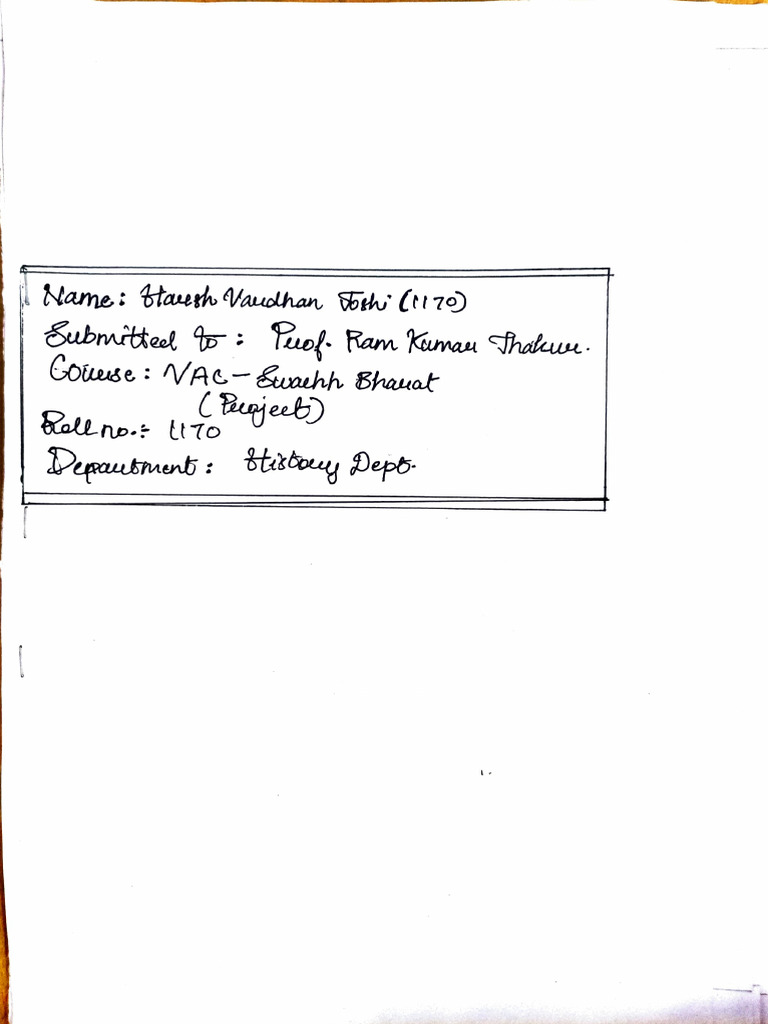 Name: Harsh Vardhan Joshi (1170)
Submitted to: Prof. Ram Kumar Thakur.
Course: VAC - Swachh Bharat
(Project)
Roll no.:- 1170
Department: History Dept.